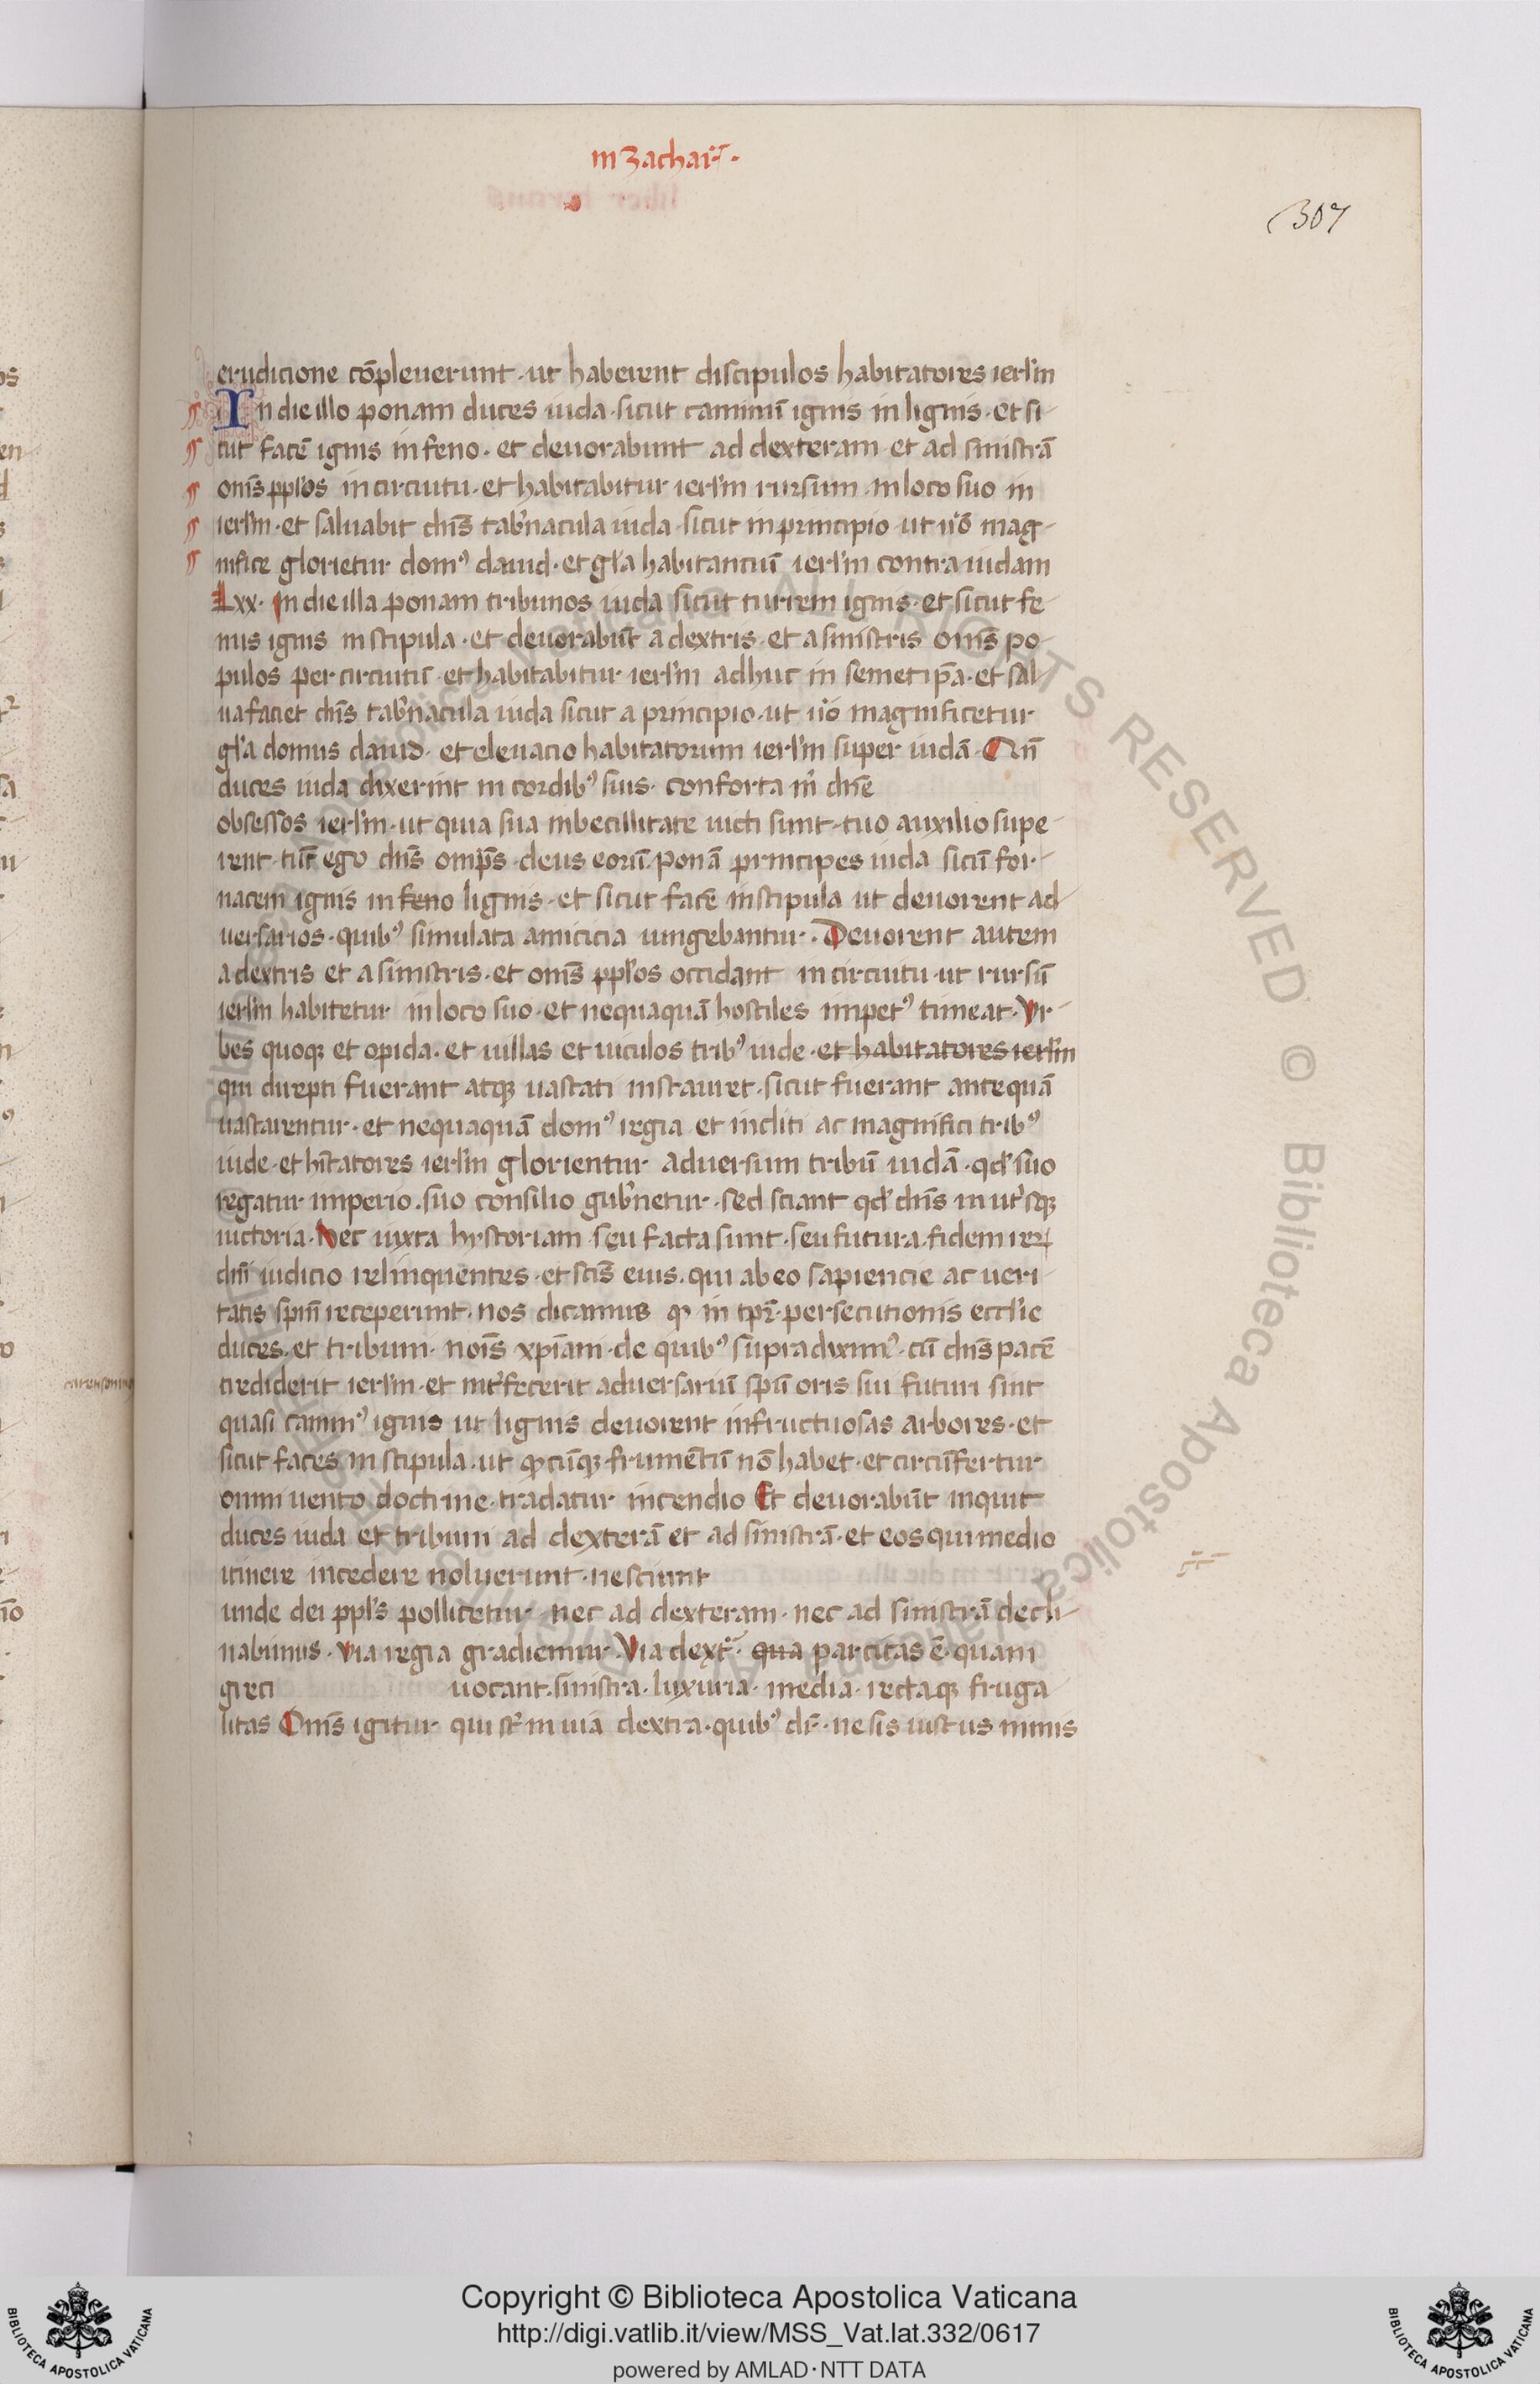 in Zachar̄.
307
erudicione cōpleuerunt. ut haberent discipulos habitatores ierl'm
In die illo ponam duces iuda. sicut caminū ignis in lignis. et si-
cut facē ignis in feno. et deuorabunt ad dexteram et ad sinistrā
om̄s ppl'os in circuitu. et habitabitur ierl'm rursum in loco suo in
ierl'm. et saluabit dn̄s tab'nacula iuda sicut in principio. ut nō mag-
nifice glorietur domꝰ dauid. et gl'a habitanciū ierl'm contra iudam
Lxx. In die illa ponam tribunos iuda sicut turrem ignis. et sicut fe
nus ignis in stipula. et deuorabūt a dextris. et a sinistris om̄s po-
pulos per circuitū. et habitabitur ierl'm adhuc in semetip̄a. et sal-
uafaciet dn̄s tab'nacula iuda sicut a principio. ut nō magnificetur
gl'a domus dauid. et eleuacio habitatorum ierl'm super iudā. Cū
duces iuda dixerint in cordibꝰ suis. conforta m̄ dn̄e
obsessos ierl'm. ut quia sua inbecillitate uicti sunt. tuo auxilio supe-
rent. tūc ego dn̄s omp̄s. deus eorū. ponā principes iuda sicut for-
nacem ignis in feno lignis. et sicut facē in stipula ut deuorent ad-
uersarios. quibꝰ simulata amicicia iungebantur. Deuorent autem
a dextris et a sinistris. et om̄s ppl'os occidant in circuitu. ut rursū
ierl'm habitetur in loco suo. et nequaquā hostiles impetꝰ timeat. Vr-
bes quoqꝫ et opida. et uillas et uiculos tribꝰ iude. et habitatores ierl'm
qui direpti fuerant atqꝫ uastati instauret. sicut fuerant antequā
uastarentur. et nequaquā domꝰ regia et incliti ac magnifici tribꝰ
iude. et hītatores ierl'm glorientur aduersum tribū iudā. qd' suo
regatur imperio. suo consilio gub'netur. sed sciant qd' dn̄s in ut'sqꝫ
uictoria. Hec iuxta hystoriam seu facta sunt. seu futura. fidem reꝝ
dn̄i iudicio relinquentes. et sc̄is eius. qui ab eo sapiencie ac ueri-
tatis sp̄m receperunt. nos dicamus ꝙ in tp̄r persecutionis eccl'ie
duces. et tribuni. nōis xp̄iani. de quibꝰ supra diximꝰ. cū dn̄s pacē
crediderit ierl'm. et int'fecerit aduersariū sp̄u oris sui futuri sint
quasi caminꝰ ignis ut lignis deuorent infructuosas arbores. et
sicut faces in stipula. ut qcūqꝫ frumentū nō habet. et circūfertur
omni uento doctrine. tradatur incendio Et deuorabūt inquit
duces iuda et tribuni ad dexterā et ad sinistrā. et eos qui medio
itinere incedere noluerunt. nesciunt
unde dei ppl's pollicetur. nec ad dexteram. nec ad sinistrā decli-
nabimus. Via regia gradiemur. Via dext̄. qua parcitas ē. quam
greci uocant. sinistra. luxuria. media. rectaqꝫ fruga
litas Om̄s igitur qui st̄ in uia dextra. quibꝰ dr̄. ne sis iustus nimis
Copyright © Biblioteca Apostolica Vaticana
http://digi.vatlib.it/view/MSS_Vat.lat.332/0617
powered by AMLAD·NTT DATA